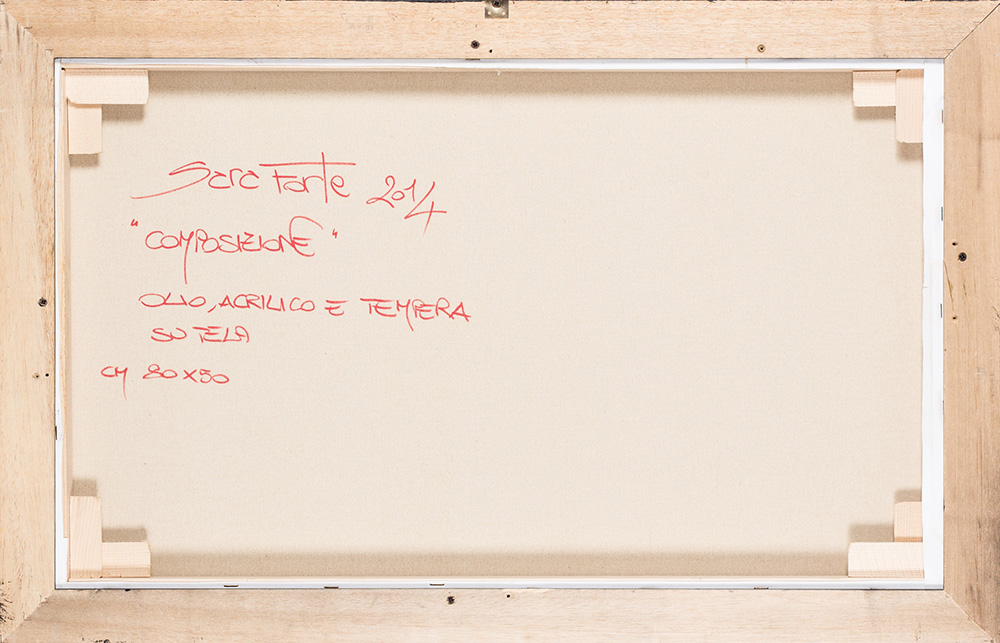 Sara Forte 2014
"COMPOSIZIONE"
OLIO, ACRILICO E TEMPERA
SU TELA
CM 80X50